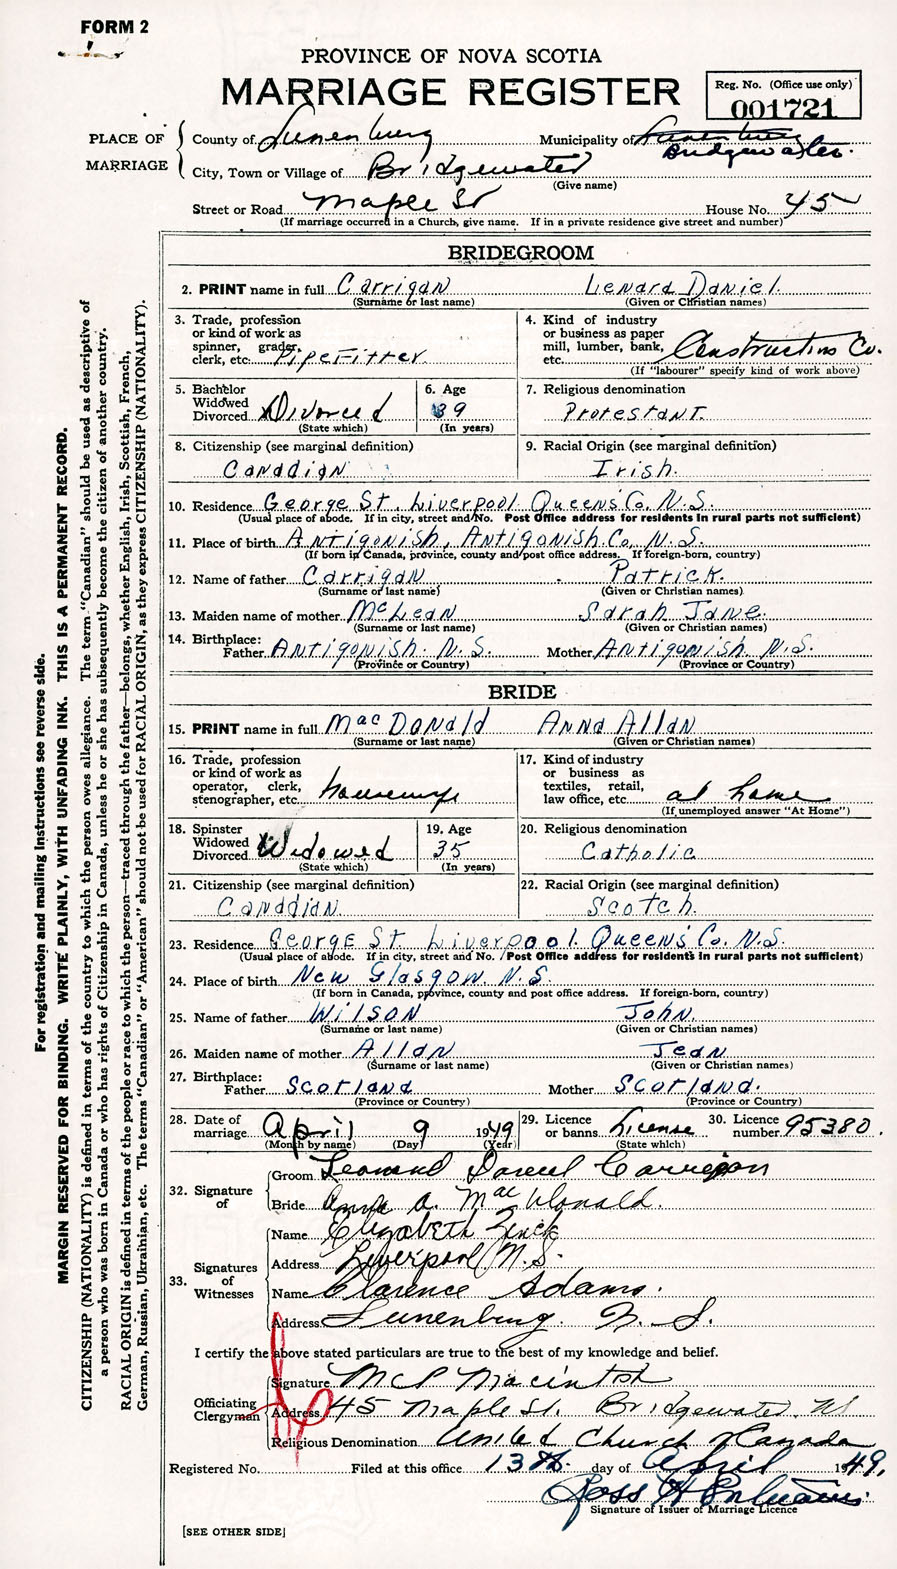 FORM 2
PROVINCE OF NOVA SCOTIA
MARRIAGE REGISTER
Reg. No. (Office use only)
001721
PLACE OF MARRIAGE
County of Lunenburg Municipality of Lunenburg
Bridgewater.
City, Town or Village of Bridgewater
(Give name)
Street or Road Maple St House No. 45
(If marriage occurred in a Church, give name. If in a private residence give street and number)
BRIDEGROOM
2. PRINT name in full Carrigan Lenard Daniel.
(Surname or last name) (Given or Christian names)
3. Trade, profession or kind of work as spinner, grader, clerk, etc. PipeFitter
4. Kind of industry or business as paper mill, lumber, bank, etc. Construction Co.
(If "labourer" specify kind of work above)
5. Bachelor Widowed Divorced Divorced
(State which)
6. Age 39
(In years)
7. Religious denomination
Protestant.
8. Citizenship (see marginal definition)
Canadian
9. Racial Origin (see marginal definition)
Irish.
10. Residence George St. Liverpool Queens Co. N.S.
(Usual place of abode. If in city, street and No. Post Office address for residents in rural parts not sufficient)
11. Place of birth Antigonish, Antigonish Co. N.S.
(If born in Canada, province, county and post office address. If foreign-born, country)
12. Name of father Carrigan Patrick.
(Surname or last name) (Given or Christian names)
13. Maiden name of mother McLean Sarah Jane.
(Surname or last name) (Given or Christian names)
14. Birthplace:
Father Antigonish. N.S. Mother Antigonish N.S.
(Province or Country) (Province or Country)
BRIDE
15. PRINT name in full MacDonald Anna Allan
(Surname or last name) (Given or Christian names)
16. Trade, profession or kind of work as operator, clerk, stenographer, etc. housewife
17. Kind of industry or business as textiles, retail, law office, etc. at home
(If unemployed answer "At Home")
18. Spinster Widowed Divorced Widowed
(State which)
19. Age 35
(In years)
20. Religious denomination
Catholic
21. Citizenship (see marginal definition)
Canadian.
22. Racial Origin (see marginal definition)
Scotch.
23. Residence George St. Liverpool. Queens Co. N.S.
(Usual place of abode. If in city, street and No. Post Office address for residents in rural parts not sufficient)
24. Place of birth New Glasgow. N.S.
(If born in Canada, province, county and post office address. If foreign-born, country)
25. Name of father Wilson John.
(Surname or last name) (Given or Christian names)
26. Maiden name of mother Allan Jean
(Surname or last name) (Given or Christian names)
27. Birthplace:
Father Scotland Mother Scotland.
(Province or Country) (Province or Country)
28. Date of marriage April 9 1949
(Month by name) (Day) (Year)
29. Licence or banns License
(State which)
30. Licence number 95380.
32. Signature of
Groom Leonard Daniel Carrigan
Bride Anna A. MacDonald.
33. Signatures of Witnesses
Name Elizabeth Zinck
Address Liverpool N.S.
Name Clarence Adams.
Address Lunenburg. N. S.
I certify the above stated particulars are true to the best of my knowledge and belief.
Officiating Clergyman
Signature Macintosh
Address 45 Maple St. Bridgewater. NS
Religious Denomination United Church of Canada
Registered No. Filed at this office 13th. day of April 1949.
Ross H
Signature of Issuer of Marriage Licence
[SEE OTHER SIDE]
For registration and mailing instructions see reverse side.
MARGIN RESERVED FOR BINDING. WRITE PLAINLY, WITH UNFADING INK. THIS IS A PERMANENT RECORD.
CITIZENSHIP (NATIONALITY) is defined in terms of the country to which the person owes allegiance. The term "Canadian" should be used as descriptive of
a person who was born in Canada or who has rights of Citizenship in Canada, unless he or she has subsequently become the citizen of another country.
RACIAL ORIGIN is defined in terms of the people or race to which the person—traced through the father—belongs, whether English, Irish, Scottish, French,
German, Russian, Ukrainian, etc. The terms "Canadian" or "American" should not be used for RACIAL ORIGIN, as they express CITIZENSHIP (NATIONALITY).